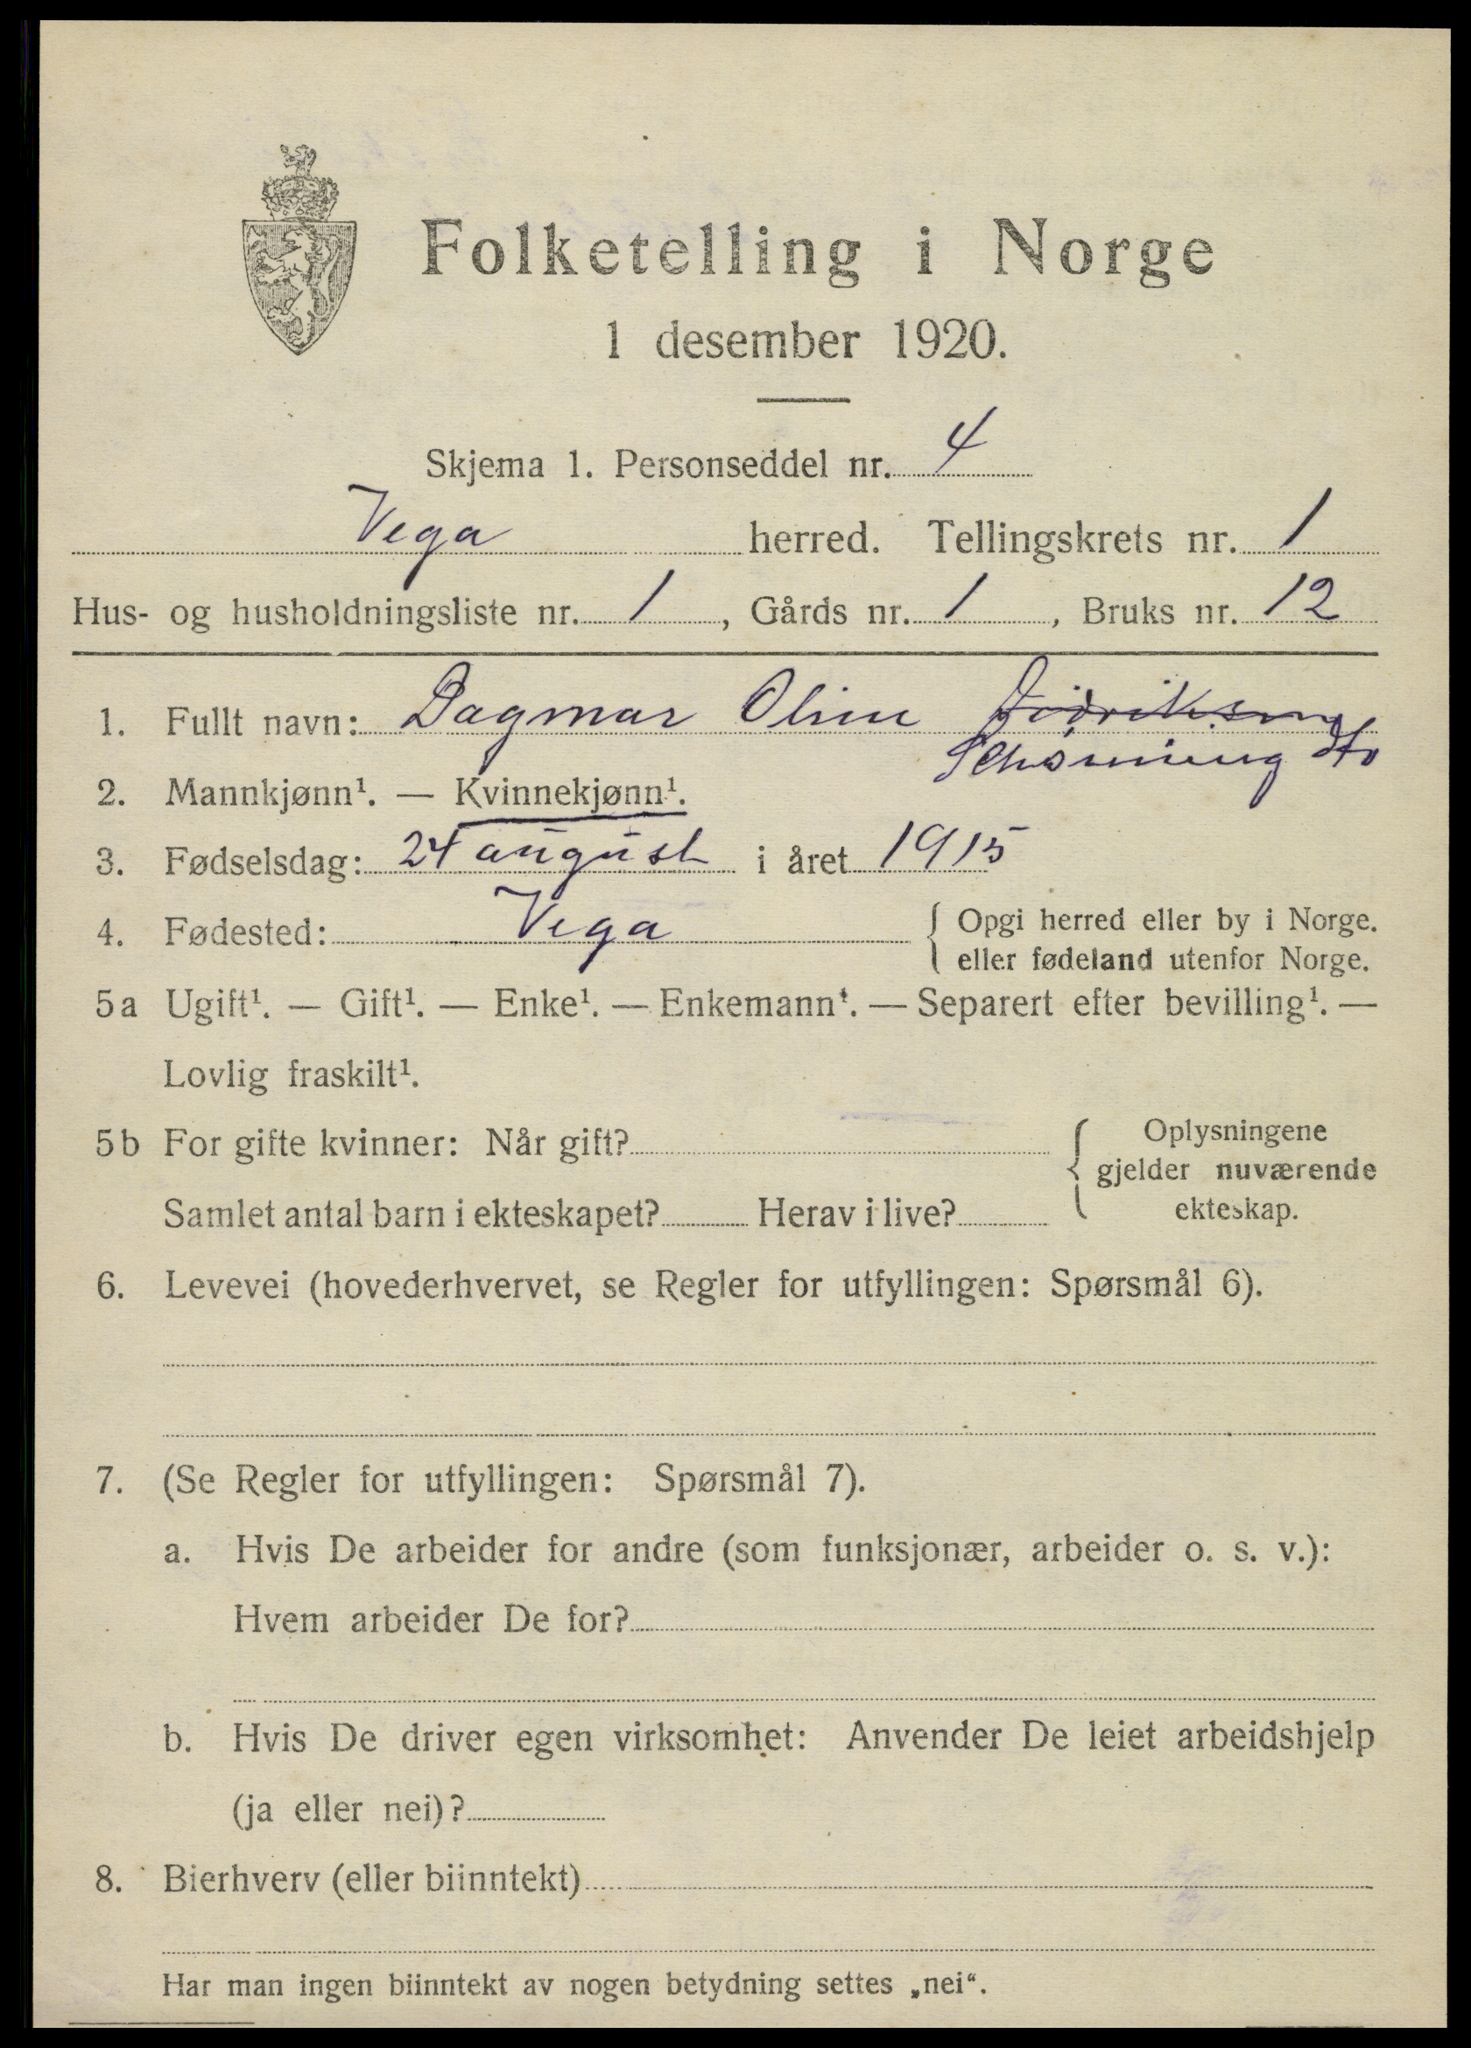 Folketelling i Norge
1 desember 1920.
Skjema 1. Personseddel nr. 4
Vega herred. Tellingskrets nr. 1
Hus- og husholdningsliste nr. 1, Gårds nr. 1, Bruks nr. 12
1. Fullt navn: Dagmar Oline Didriksen
Schønning dtr
2. Mannkjønn¹. — Kvinnekjønn¹.
3. Fødselsdag: 24 august i året 1915
4. Fødested: Vega { Opgi herred eller by i Norge.
eller fødeland utenfor Norge.
5a Ugift¹. — Gift¹. — Enke¹. — Enkemann¹. — Separert efter bevilling¹. —
Lovlig fraskilt¹.
5b For gifte kvinner: Når gift? { Oplysningene
gjelder nuværende
Samlet antal barn i ekteskapet? Herav i live? ekteskap.
6. Levevei (hovederhvervet, se Regler for utfyllingen: Spørsmål 6).
7. (Se Regler for utfyllingen: Spørsmål 7).
a. Hvis De arbeider for andre (som funksjonær, arbeider o. s. v.):
Hvem arbeider De for?
b. Hvis De driver egen virksomhet: Anvender De leiet arbeidshjelp
(ja eller nei)?
8. Bierhverv (eller biinntekt)
Har man ingen biinntekt av nogen betydning settes „nei“.